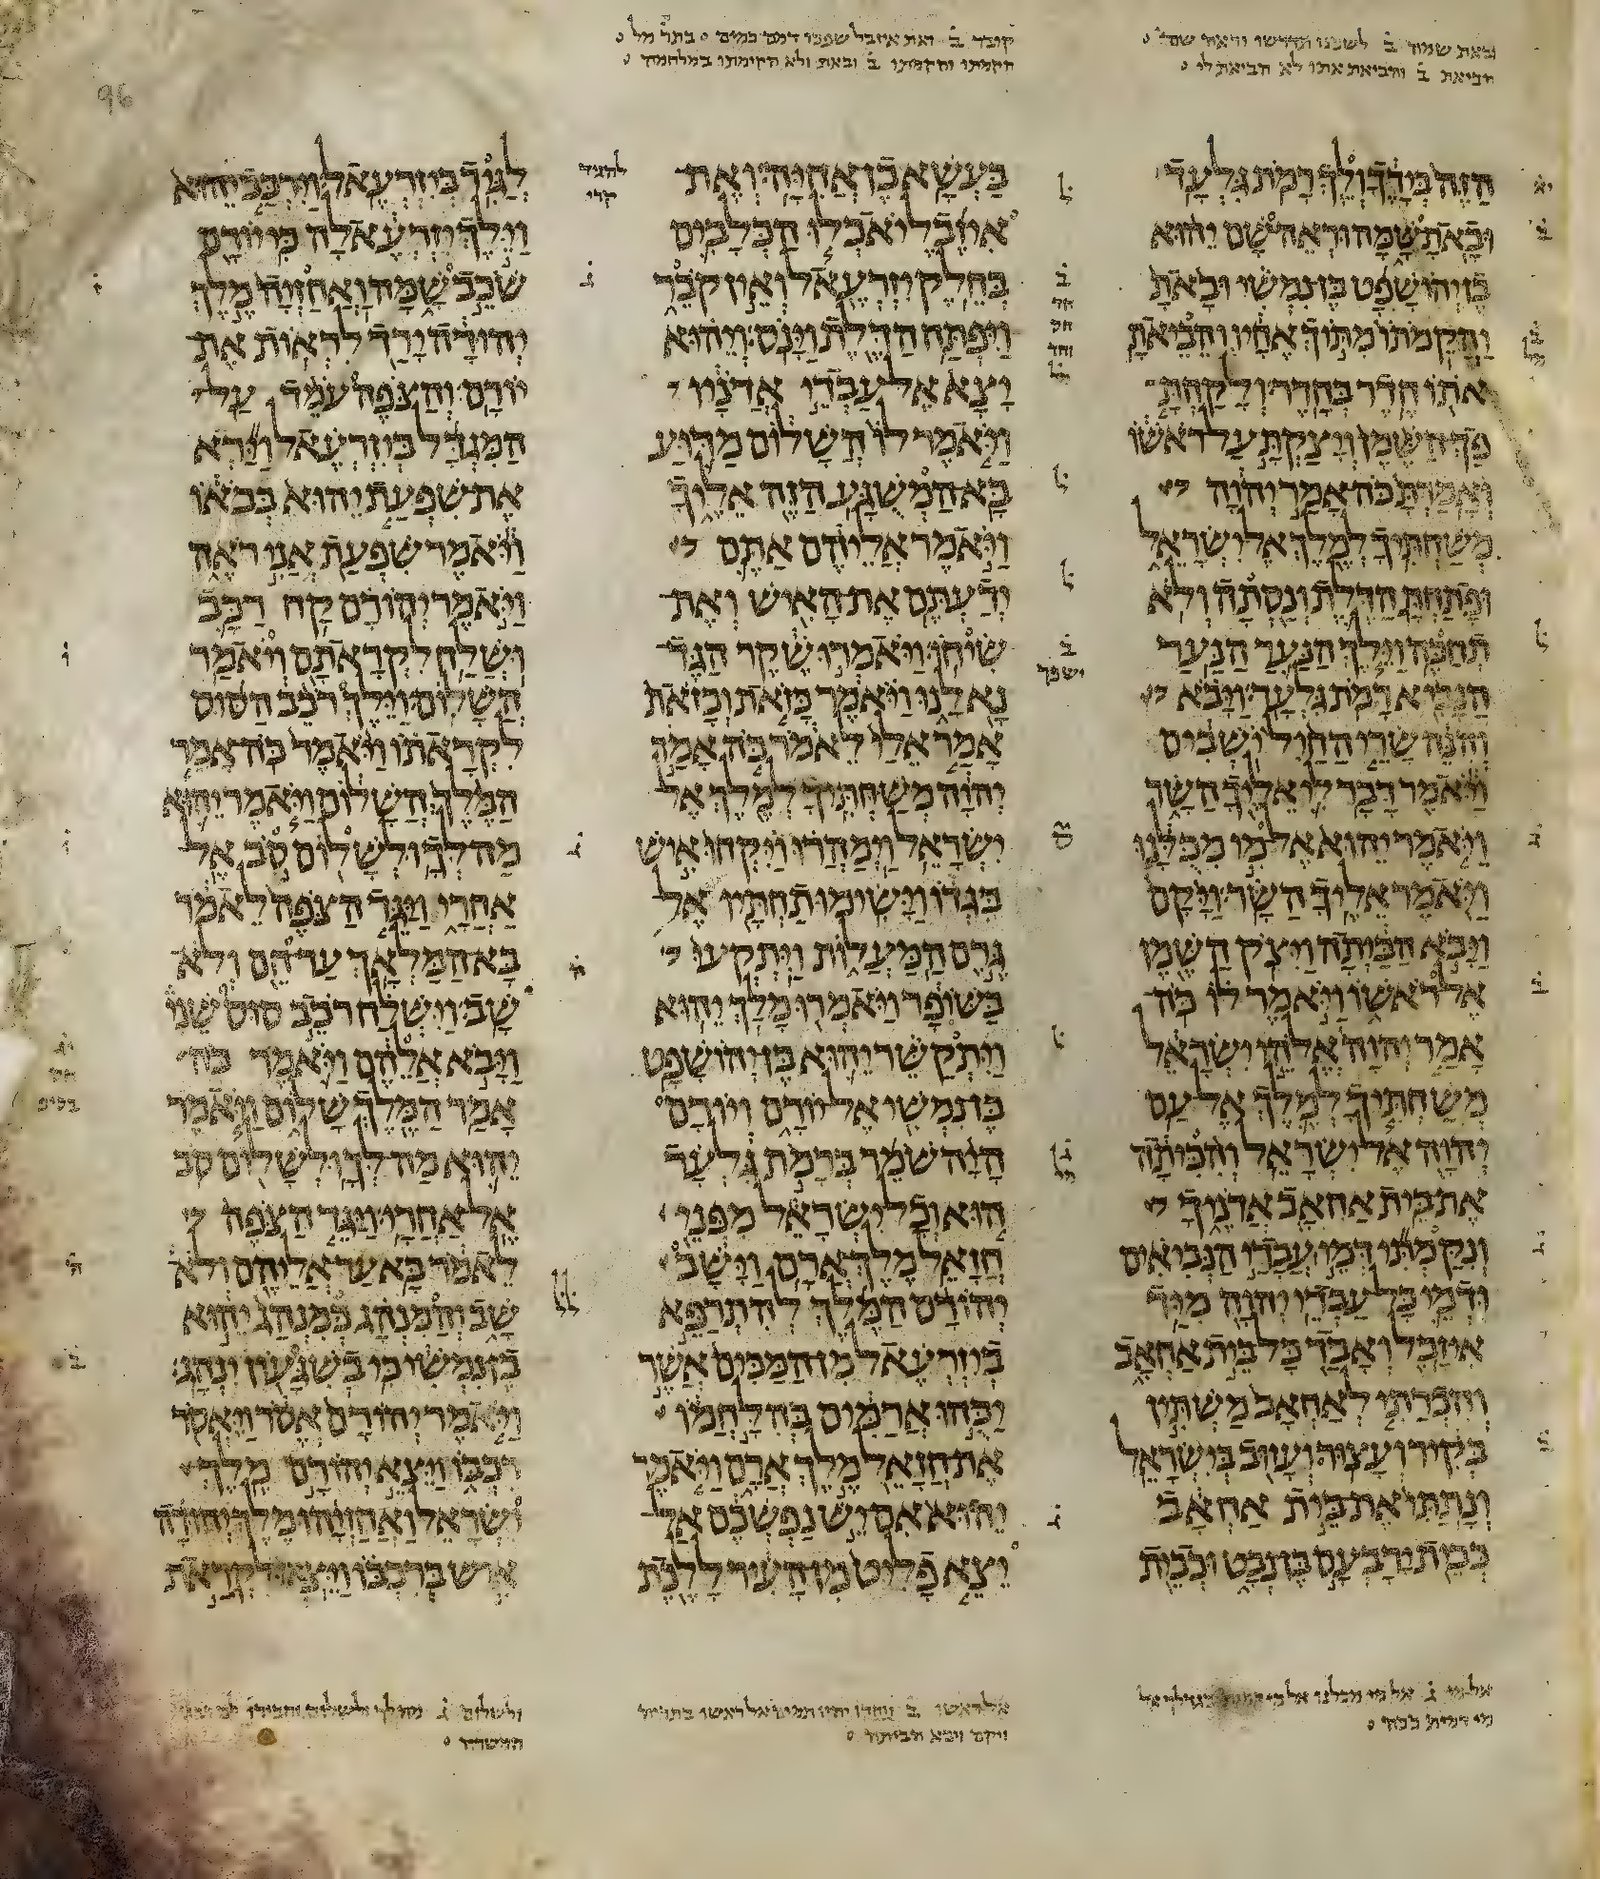 ובאת שמה ב לשכנו תדרשו וראה שם
הביאת ב והביאת אתו לא הביאת לי
קובר ב ואת איזבל שפכו דמם כמים בתר מל
הקמתו והקמתו ב ובאת ולא הקימתו במלחמה
הזה בידך ולך רמת גלעד
ובאת שמה וראה שם יהוא
בן יהושפט בן נמשי ובאת
והקמתו מתוך אחיו והביאת
אתו חדר בחדר ולקחת
פך השמן ויצקת על ראשו
ואמרת כה אמר יהוה
משחתיך למלך אל ישראל
ופתחת הדלת ונסתה ולא
תחכה וילך הנער הנער
הנביא רמת גלעד ויבא
והנה שרי החיל ישבים
ויאמר דבר לי אליך השר
ויאמר יהוא אל מי מכלנו
ויאמר אליך השר ויקם
ויבא הביתה ויצק השמן
אל ראשו ויאמר לו כה
אמר יהוה אלהי ישראל
משחתיך למלך אל עם
יהוה אל ישראל והכיתה
את בית אחאב אדניך
ונקמתי דמי עבדי הנביאים
ודמי כל עבדי יהוה מיד
איזבל ואבד כל בית אחאב
והכרתי לאחאב משתין
בקיר ועצור ועזוב בישראל
ונתתי את בית אחאב
כבית ירבעם בן נבט וכבית
בעשא בן אחיה ואת
איזבל יאכלו הכלבים
בחלק יזרעאל ואין קבר
ויפתח הדלת וינס ויהוא
יצא אל עבדי אדניו
ויאמר לו השלום מדוע
בא המשגע הזה אליך
ויאמר אליהם אתם
ידעתם את האיש ואת
שיחו ויאמרו שקר הגד
נא לנו ויאמר כזאת וכזאת
אמר אלי לאמר כה אמר
יהוה משחתיך למלך אל
ישראל וימהרו ויקחו איש
בגדו וישימו תחתיו אל
גרם המעלות ויתקעו
בשופר ויאמרו מלך יהוא
ויתקשר יהוא בן יהושפט
בן נמשי אל יורם ויורם
היה שמר ברמת גלעד
הוא וכל ישראל מפני
חזאל מלך ארם וישב
יהורם המלך להתרפא
ביזרעאל מן המכים אשר
יכהו ארמים בהלחמו
את חזאל מלך ארם ויאמר
יהוא אם יש נפשכם אל
יצא פליט מן העיר ללכת
להגיד
קרי
לגיד ביזרעאל וירכב יהוא
וילך יזרעאלה כי יורם
שכב שמה ואחזיה מלך
יהודה ירד לראות את
יורם והצפה עמד על
המגדל ביזרעאל וירא
את שפעת יהוא בבאו
ויאמר שפעת אני ראה
ויאמר יהורם קח רכב
ושלח לקראתם ויאמר
השלום וילך רכב הסוס
לקראתו ויאמר כה אמר
המלך השלום ויאמר יהוא
מה לך ולשלום סב אל
אחרי ויגד הצפה לאמר
בא המלאך עד הם ולא
שב וישלח רכב סוס שני
ויבא אלהם ויאמר כה
אמר המלך שלום ויאמר
יהוא מה לך ולשלום סב
אל אחרי ויגד הצפה
לאמר בא עד אליהם ולא
שב והמנהג כמנהג יהוא
בן נמשי כי בשגעון ינהג
ויאמר יהורם אסר ויאסר
רכבו ויצא יהורם מלך
ישראל ואחזיהו מלך יהודה
איש ברכבו ויצאו לקראת
אל מי ג אל מי מכלנו אל מי דמית בגודלך אל
מי דמית ככה
אל ראשו ב
ויקם ויבא הביתה
ולשלום ג מה לך ולשלום
המשרה